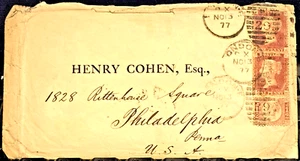 NO 13
77
25
HENRY COHEN, Esq.,
NO 13
77
1828 Rittenhouse Square
Philadelphia
Penna
U. S. A.